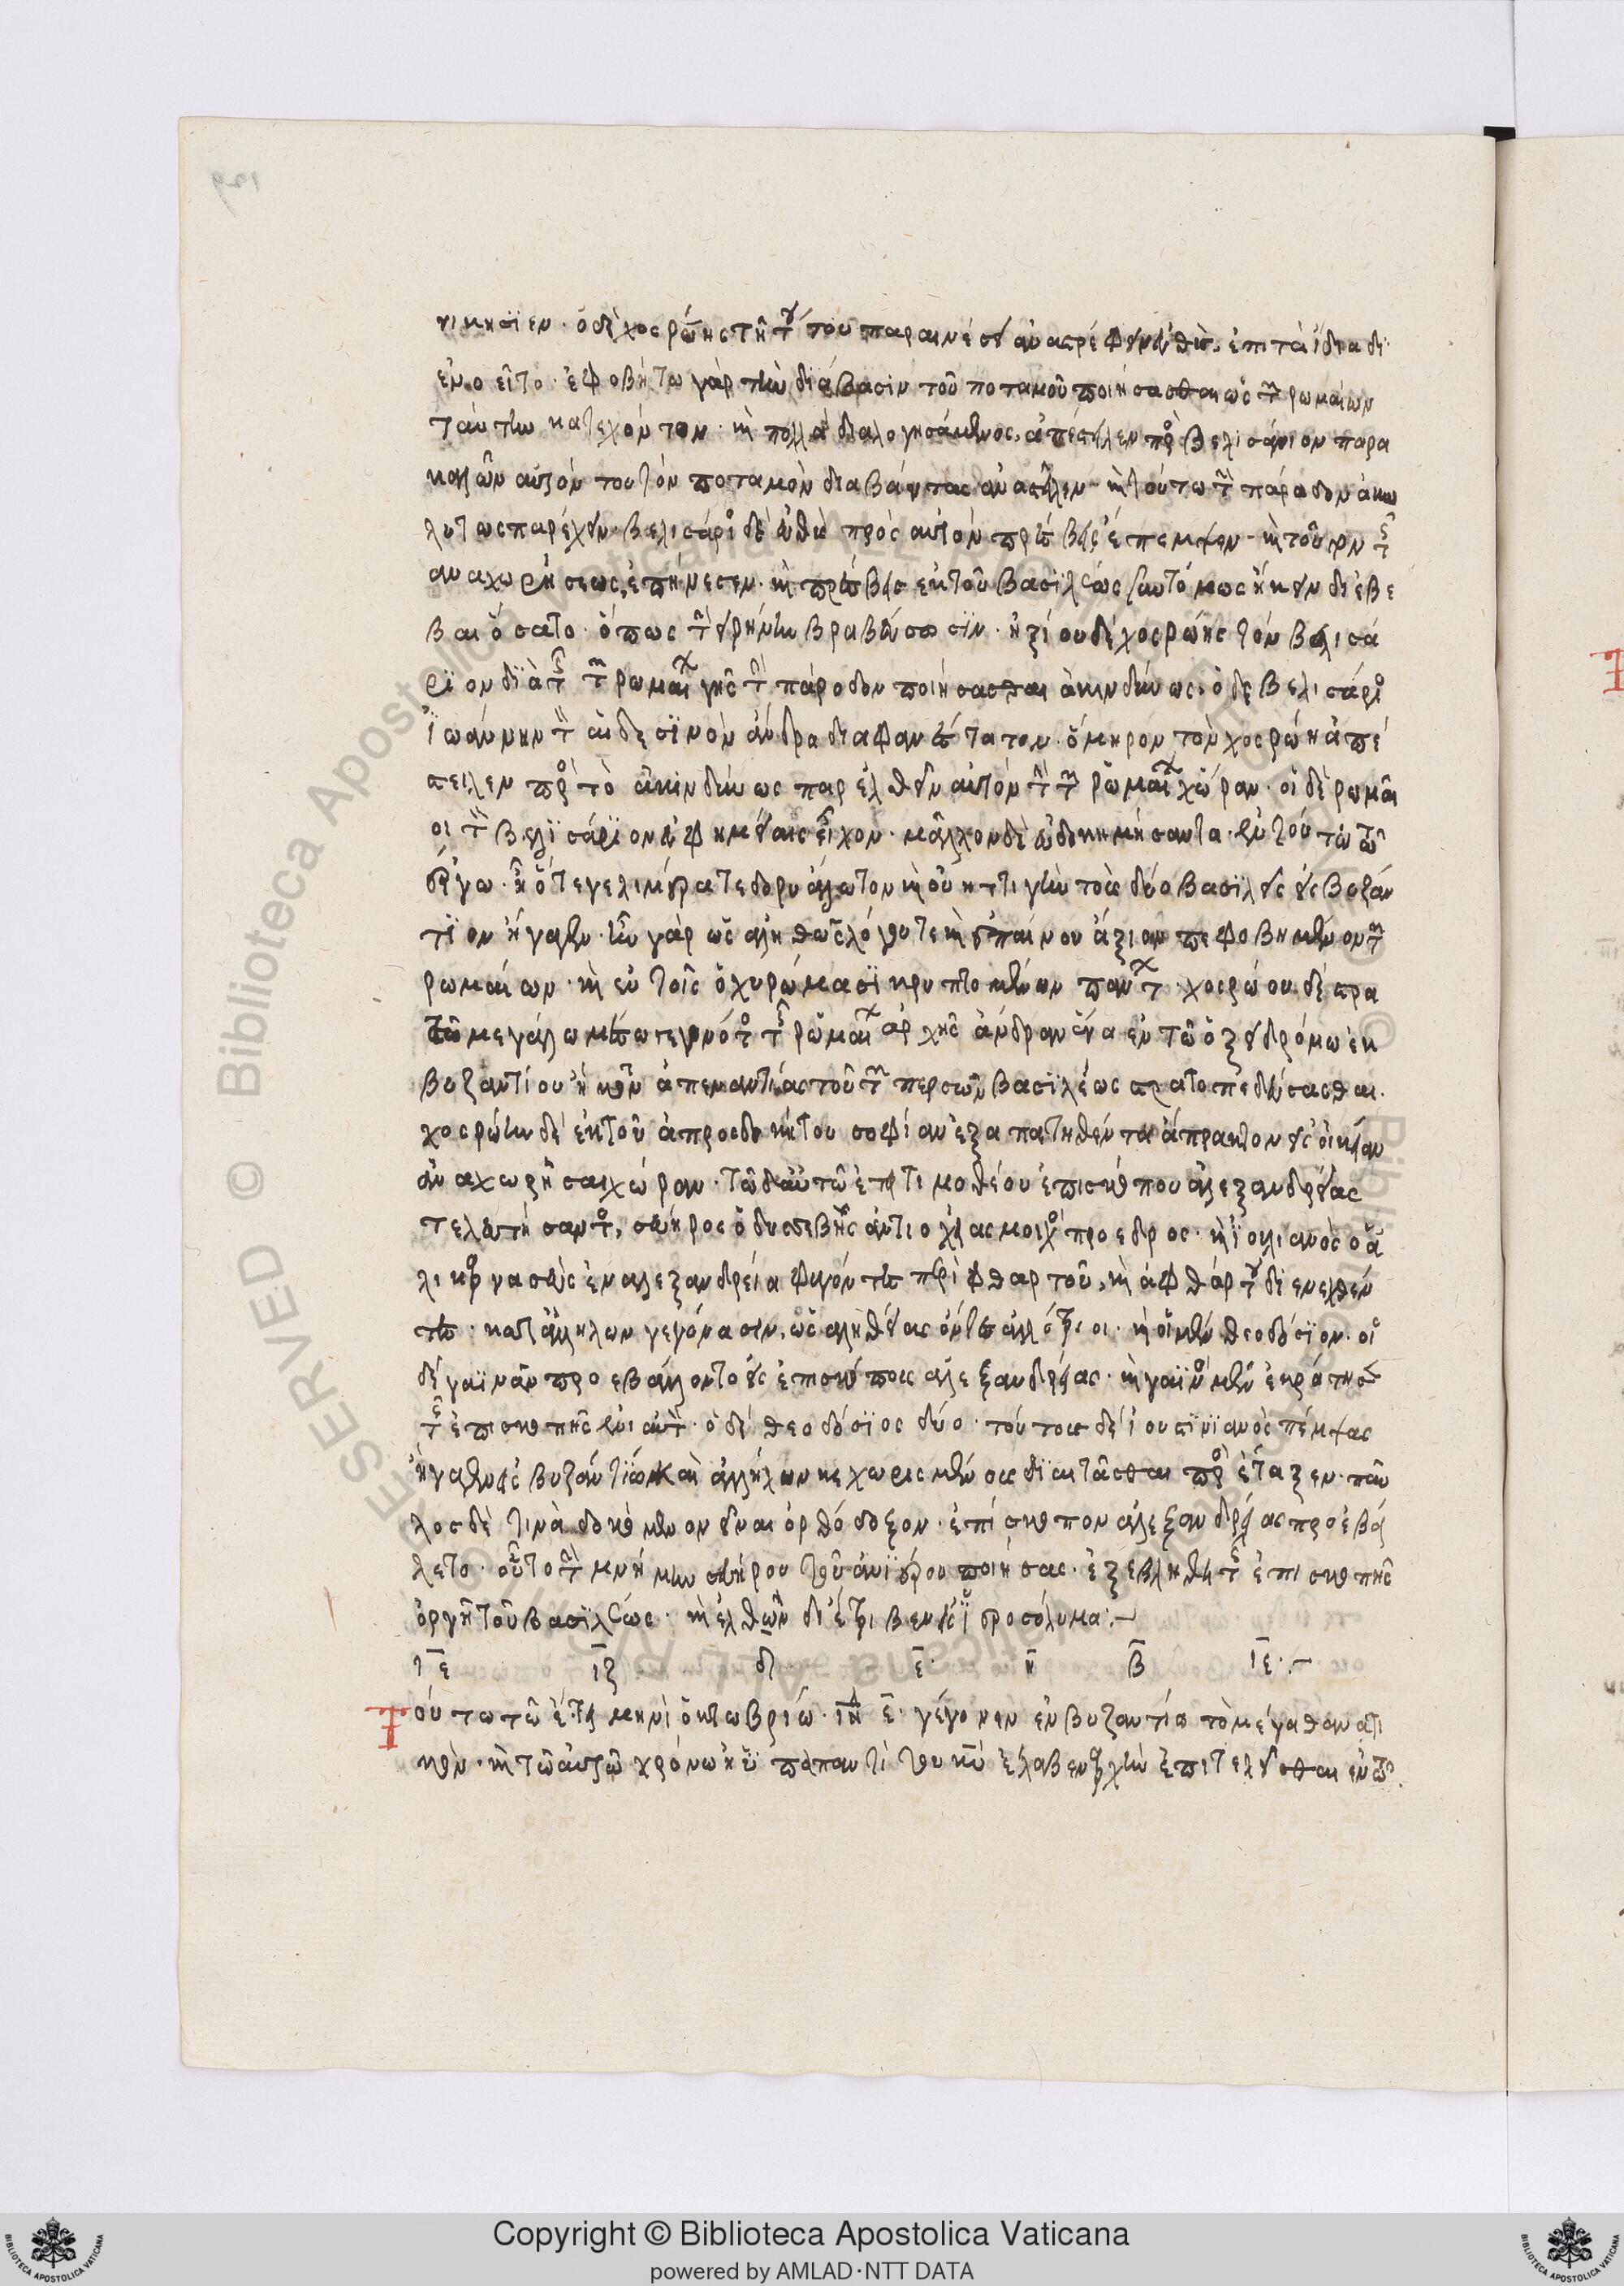 νικήσϊεν· ὁ δὲ χοσρώης τῆ τού του παραινέσει ἀναστρέφειν εὐθὺς ἐπὶ τὰ ἴδια δϊ
ενοεῖτο· ἐφοβήτω γὰρ τὴν διάβασιν τοῦ ποταμοῦ ποιήσασθαι ὡς τῶν ρωμαίων
ταύτην κατεχόντων· καὶ πολλὰ διαλογησάμενος, ἀπέστειλεν πρὸς βελισάριον παρα
καλῶν αὐτὸν τοῦ τὸν ποταμὸν διαβάντας ἀναστεῖλεν· καὶ τούτω τὴν πάροδον ἀκω
λύτως παρέχειν· βελισάριος δὲ εὐθὺς πρὸς αὐτὸν πρέσβεις ἔπεμψεν· καὶ τοῦτον τῆς
αναχωρήσεως ἐπήνεσεν· καὶ πρέσβεις ἐκ τοῦ βασϊλέως συντόμως ἥκειν διεβε
βαιόσατο· ὅπως τὴν εἰρήνην βραβεύσωσϊν· ἠξίου δὲ χοσρώης τὸν βελισά
ρϊον δϊὰ τῆς τῶν ρωμαίων γῆς τὴν πάροδον ποιήσασθαι ἀκινδύνως· ὁ δὲ βελισάριος
ἰωάννην τὸν αἰδεσϊνὸν ἄνδρα διαφανέστατον· ὅμηρον τὸν χοσρώη ἀπέ
στειλεν πρὸς τὸ ἀκινδύνως παρέλθειν αὐτὸν τὴν τῶν ρωμαίων χώραν· οἱ δὲ ρωμαῖ
οι τὸν βελϊσάρϊον εὐφημείαις εἶχον· μᾶλλον δὲ εὐδοκημήσαντα ἐν τούτω τῶ
ἔργω· ἢ ὅτε γελιμέρα τε δορυάλωτον καὶ οὐήττιγην τοὺς δύο βασϊλεῖς εἰς βυζάν
τϊον ἤγαγεν· ἦν γὰρ ὡς ἀληθῶς λόγου τε καὶ ἐπαίνου ἄξιον πεφοβημένων τῶν
ρωμαίων· καὶ ἐν τοῖς ὀχυρώμασϊ κρυπτομένων πάντων· χοσρώου δὲ
τῶ μεγάλω μέσω γεγονότος τῆς ρωμαίων ἀρχῆς ἄνδραν ἕνα ἐν τῶ ὀξειδρόμω ἐκ
βυζαντίου ἥκειν ἀπεναντίας τοῦ τῶν περσῶν βασϊλέως στρατοπεδεύσασθαι·
χοσρώην δὲ ἐκ τοῦ ἀπροσδοκήτου σοφίαν ἐξαπατηθέντα ἄπρακτον εἰς οἰκείαν
ἀναχωρῆσαι χώραν· τῶ δὲ αὐτῶ ἔτει τιμοθέου ἐπισκόπου ἀλεξανδρείας
τελευτήσαντος, σευῆρος ὁ δυσσεβὴς ἀντιοχείας μοιχὸς πρόεδρος· καὶ ἰουλιανὸς ὁ ἁ
λικαρνασεὺς ἐν ἀλεξανδρεία φυγόντες περὶ φθαρτοῦ, καὶ ἀφθάρτου διενεχθέν
τες· κατ ἀλλήλων γεγόνασιν, ὡς ἀληθείας ὄντες ἀλλότριοι· καὶ οἱ μὲν θεοδόσϊον· οἱ
δὲ γαϊνᾶν προεβάλλοντο εἰς ἐπισκόπους ἀλεξανδρείας· καὶ γαϊνὸς μὲν ἐκράτησεν
τῆς ἐπισκοπῆς ἐνιαυτὸν· ὁ δὲ θεοδόσϊος δύο· τούτους δὲ ἰουστϊνϊανὸς πέμψας
ἤγαγεν εἰς βυζάντϊον καὶ ἀλλήλων κεχωρισμένους δϊαιτᾶσθαι προσέταξεν· παῦ
λος δὲ τινὰ δοκόμενον εἶναι ὀρθόδοξον· ἐπίσκοπον ἀλεξανδρείας προεβά
λετο· οὗτος τὴν μνήμην σευήρου τοῦ ἀνϊέρου ποιήσας· ἐξεβλήθη τῆς ἐπισκοπῆς
ὀργῆ τοῦ βασϊλέως· καὶ ἐλθὼν διέτριβεν εἰς ἱεροσόλυμα:–
ιε ιζ δ ε η β ιε·–
τούτω τῶ ἔτει μηνὶ ὀκτωβρίω· ἰνδ ε· γέγονεν ἐν βυζαντίω τὸ μέγα θανατι
κὸν· καὶ τῶ αὐτῶ χρόνω ἡ ὑπαπαντὶ τοῦ κυ ἔλαβεν ἀρχὴν ἐπιτελεῖσθαι ἐν τῶ